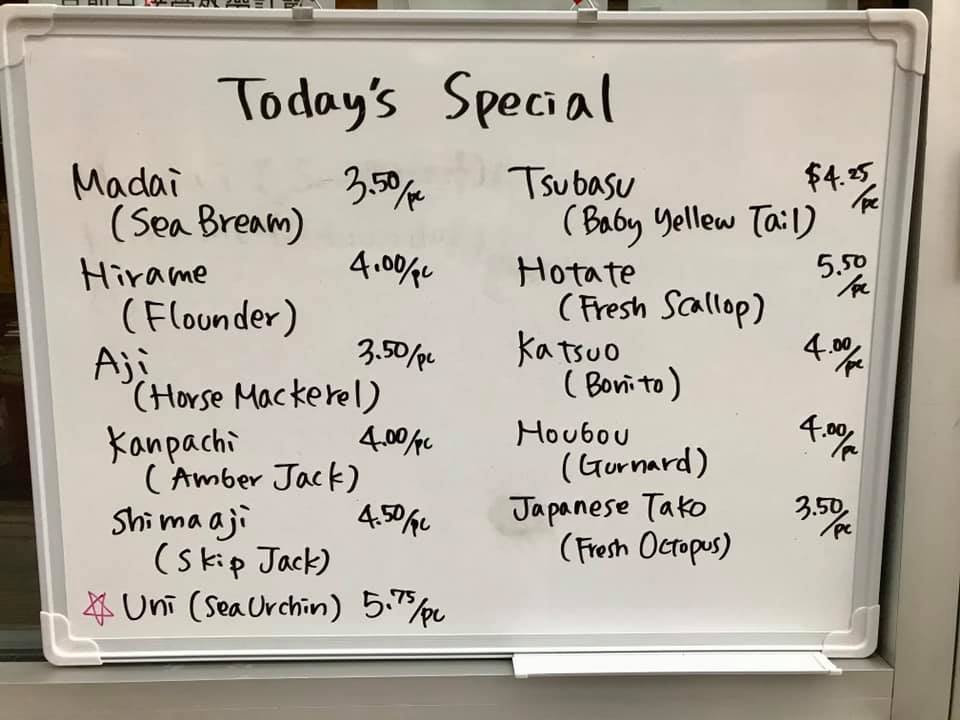 Today's Special
Madai 3.50/pc
(Sea Bream)
Hirame 4.00/pc
(Flounder)
Aji 3.50/pc
(Horse Mackerel)
Kanpachi 4.00/pc
(Amber Jack)
Shimaaji 4.50/pc
(Skip Jack)
Uni (Sea Urchin) 5.75/pc
Tsubasu $4.25/pc
(Baby Yellew Tail)
Hotate 5.50/pc
(Fresh Scallop)
Katsuo 4.00/pc
(Bonito)
Houbou 4.00/pc
(Gurnard)
Japanese Tako 3.50/pc
(Fresh Octopus)